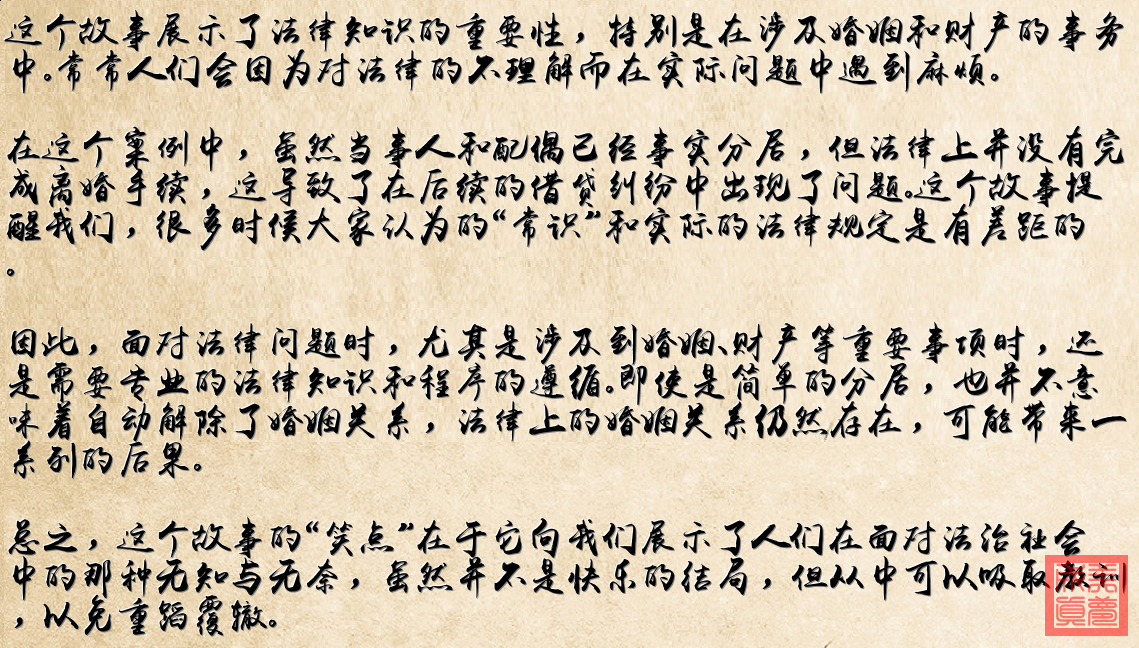 这个故事展示了法律知识的重要性，特别是在涉及婚姻和财产的事务
中。常常人们会因为对法律的不理解而在实际问题中遇到麻烦。
在这个案例中，虽然当事人和配偶已经事实分居，但法律上并没有完
成离婚手续，这导致了在后续的借贷纠纷中出现了问题。这个故事提
醒我们，很多时候大家认为的“常识”和实际的法律规定是有差距的
。
因此，面对法律问题时，尤其是涉及到婚姻、财产等重要事项时，还
是需要专业的法律知识和程序的遵循。即使是简单的分居，也并不意
味着自动解除了婚姻关系，法律上的婚姻关系仍然存在，可能带来一
系列的后果。
总之，这个故事的“笑点”在于它向我们展示了人们在面对法治社会
中的那种无知与无奈，虽然并不是快乐的结局，但从中可以吸取教训
，以免重蹈覆辙。